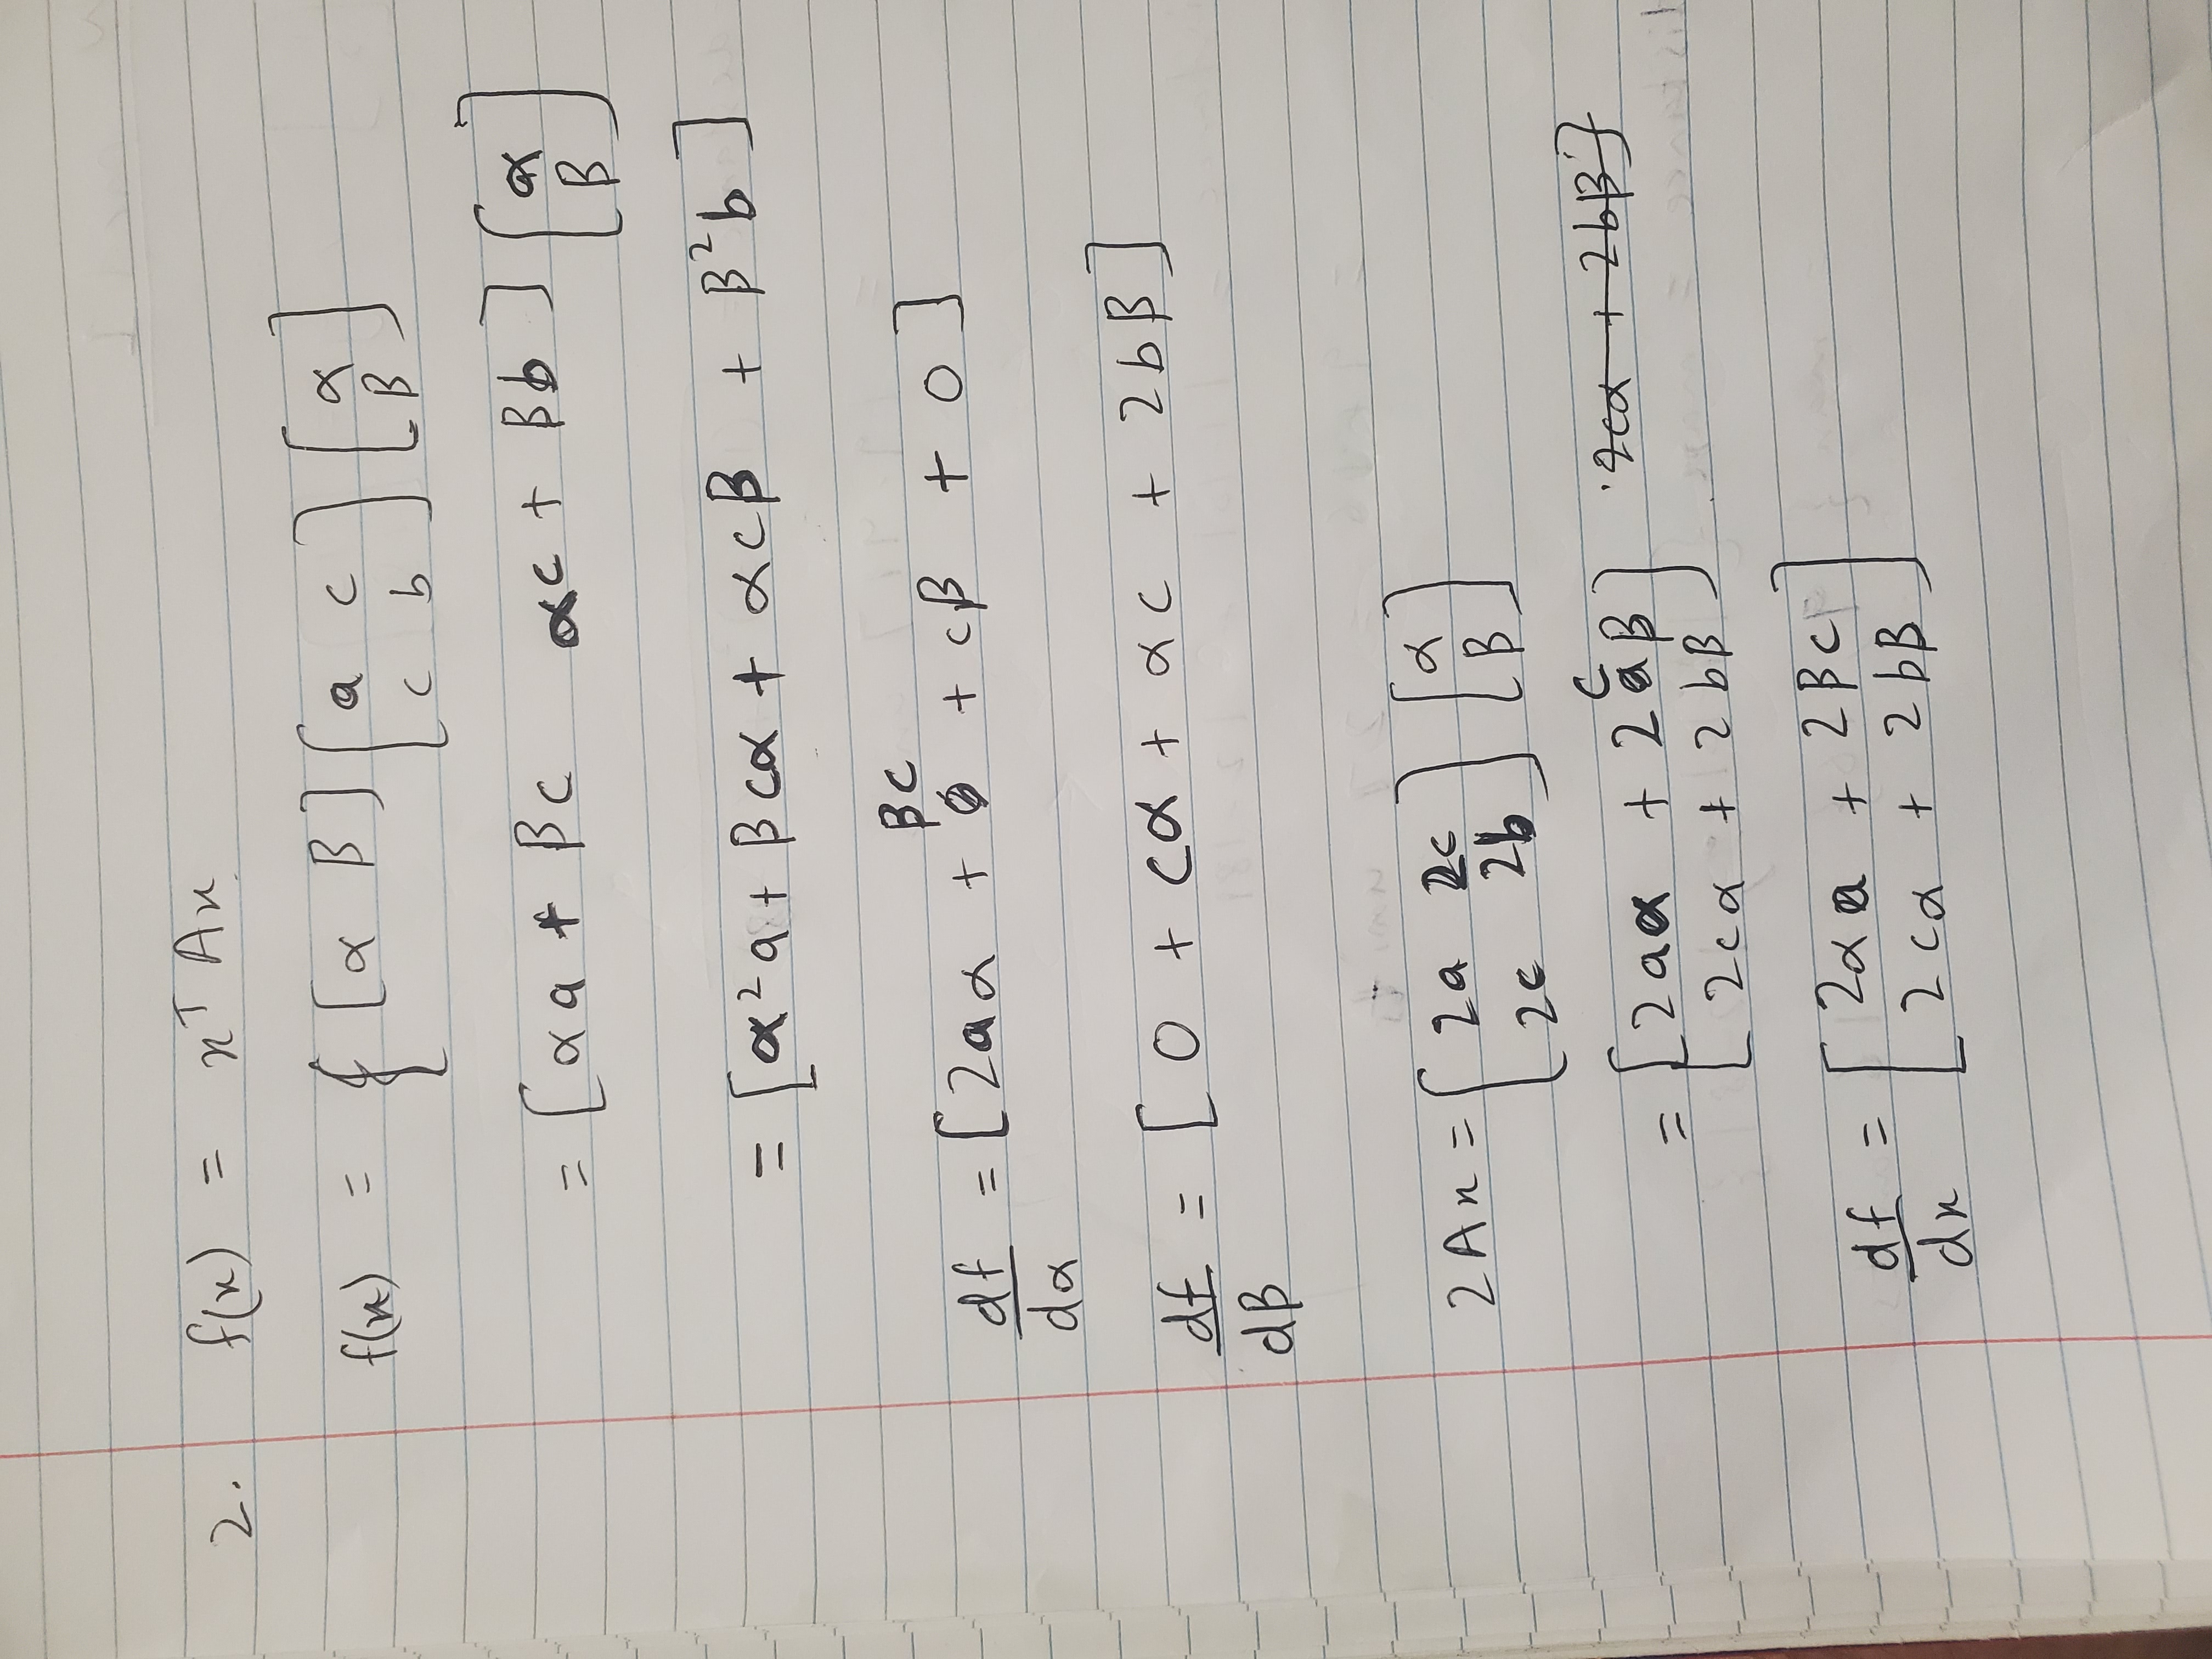 2. f(x) = xᵀ Ax
f(x) = { [α β] [a c] [α]
[c b] [β]
= [αa + βc αc + βb] [α]
[β]
= [α²a + βcα + αcβ + β²b]
βc
df/dα = [2aα + 0 + cβ + 0]
df/dβ = [0 + cα + αc + 2bβ]
2Ax = [2a 2c] [α]
[2c 2b] [β]
c
= [2aα + 2aβ] 2cα + 2bβ]
[2cα + 2bβ]
df/dx = [2αa + 2βc]
[2cα + 2bβ]